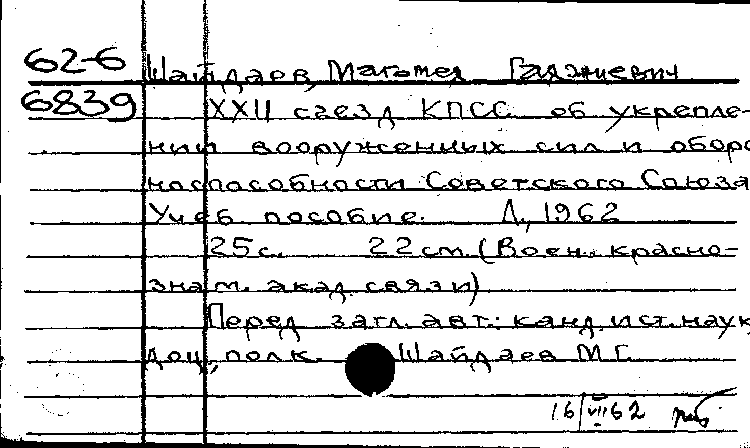 62-6 Шайдаев, Магомед Гаджиевич
6839 XXII съезд КПСС об укрепле-
нии вооруженных сил и оборо
носпособности Советского Союза
Учеб пособие. Л., 1962
25с. 22 см. (Воен. красно-
знам. акад. связи)
Перед загл. авт.: канд. ист. наук,
доц., полк. Шайдаев М.Г.
16/VII 62